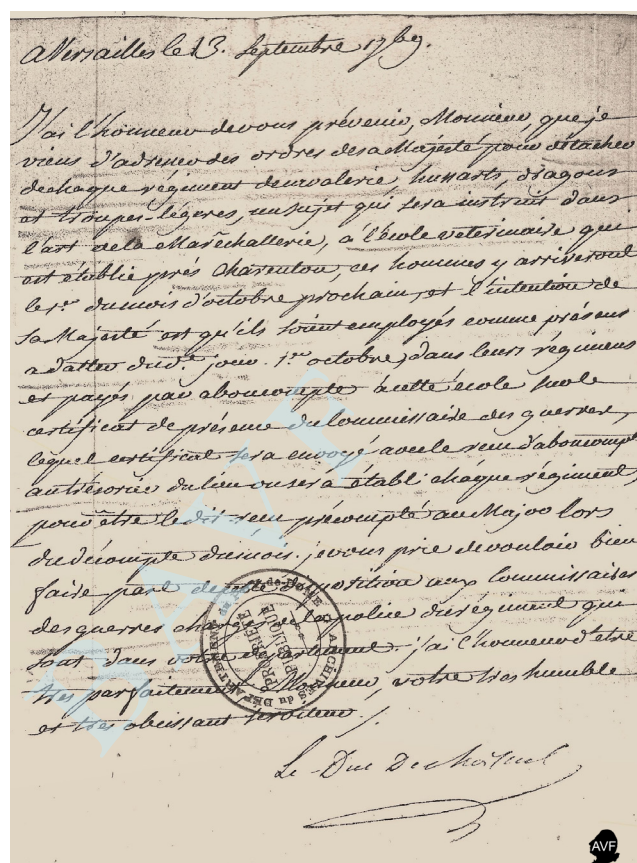 a Versailles le 13. Septembre 1769.
J'ai l'honneur de vous prévenir, Monsieur, que je
viens d'adresser des ordres de sa Majesté pour détacher
de chaque régiment de cavalerie, hussarts, dragons
et troupes-légeres, un sujet qui sera instruit dans
l'art de la Maréchallerie, a l'école veterinaire qui
est établie prés Charenton, ces hommes y arriveront
le 1.er du mois d'octobre prochain, et l'intention de
sa Majesté est qu'ils soient employés comme présens
a datter dud.t jour 1.er octobre, dans leurs régimens
et payés par aboncompte a cette école sur le
certificat de présence du Commissaire des guerres,
lequel certificat sera envoyé avec le recu d'aboncompte
au trésorier du lieu ou sera établi chaque régiment,
pour être ledit recu précompté au Major lors
du décompte du mois. je vous prie de vouloir bien
faire part de cette disposition aux Commissaires
des guerres chargés de la police du régiment qui
sont dans votre departement. j'ai l'honneur d'être
tres parfaitement, Monsieur, votre tres humble
et tres obeissant serviteur.
Le Duc De choiseul
ARCHIVES du DÉPARTEMENT du
PROPRIÉTÉ
PUBLIQUE
AVF
AVF